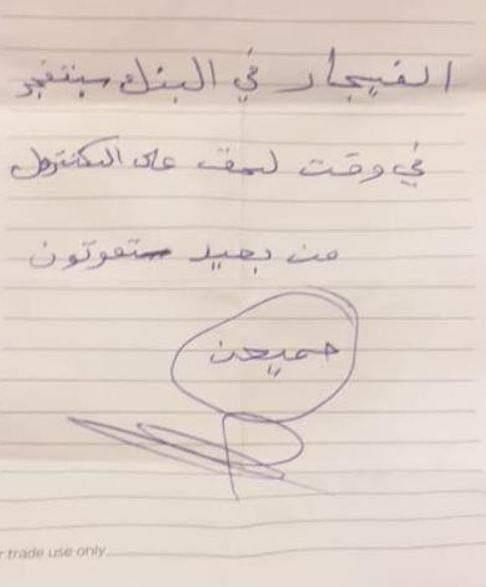 الفيجار في البنك ستنفجر
في وقت لحق على الكنترول
من بعيد ستموتون
جميعن
r trade use only